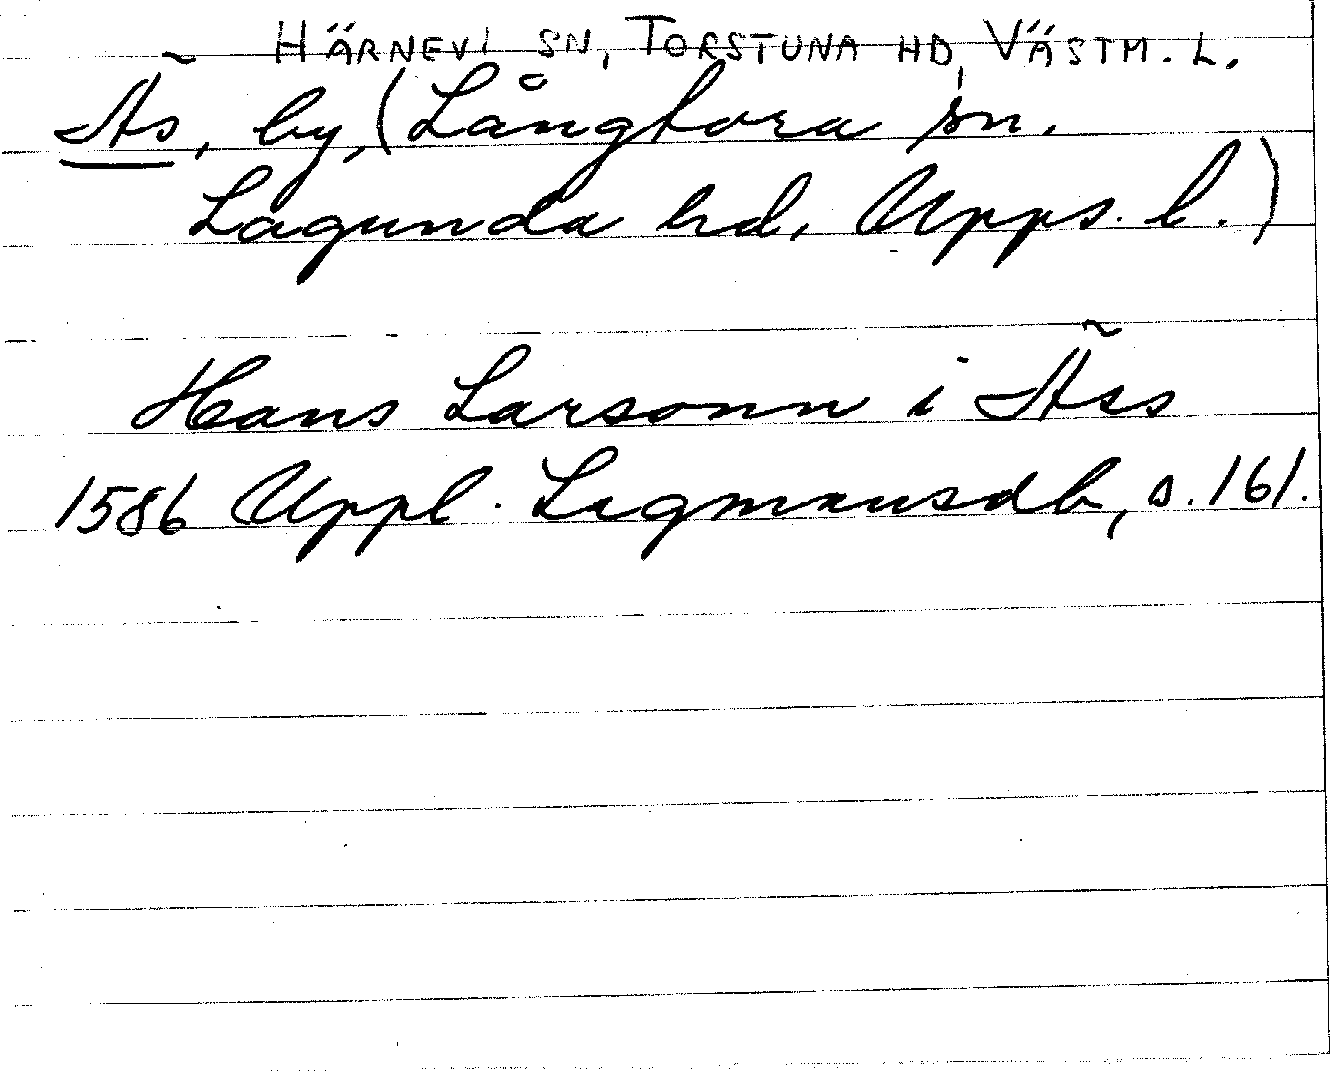 HÄRNEVI SN, TORSTUNA HD, VÄSTM. L.
Äs, by, (Långtora sn.
Lagunda hd, Upps. l.)
Hans Larsonn i Äss
1586 Uppl. Lagmansdb, s. 161.